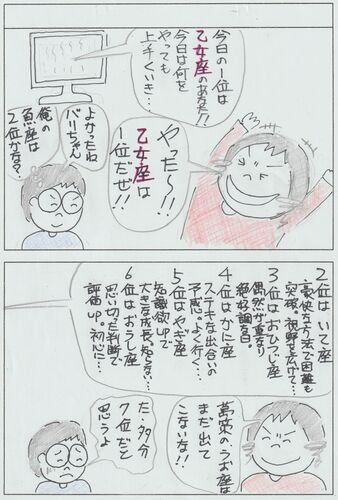 今日の1位は
乙女座のあなた!!
今日は何を
やっても
上手くいき…
やった〜!!
乙女座は
1位だぜ!!
よかったね
バリちゃん
俺の
魚座は
2位かな?
2位はいて座
豪快な法で困難も
突破。視野を広げて…
3位はおひつじ座
偶然が重なり
絶好調な日。
4位はかに座
ステキな出合いの
予感。よく行く…
5位はやぎ座
知識欲UPで
大きな成長。知らない…
6位はおうし座
思い切った判断で
評価UP。初心に…
のうお座は
まだ出て
こないな!!
た・多分
7位だと
思うよ